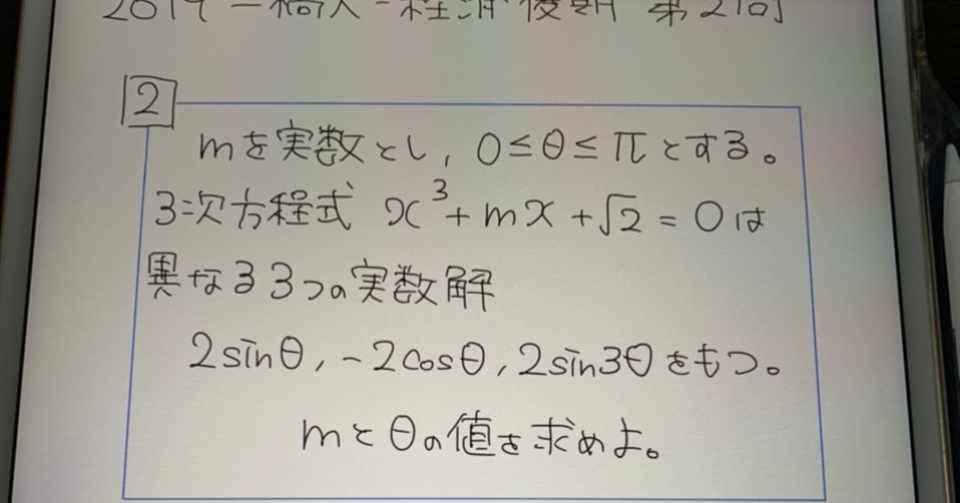 2019 一橋大・経済 後期 第2問
2
mを実数とし, 0≤θ≤πとする。
3次方程式 x³+mx+√2=0は
異なる3つの実数解
2sinθ, -2cosθ, 2sin3θをもつ。
mとθの値を求めよ。